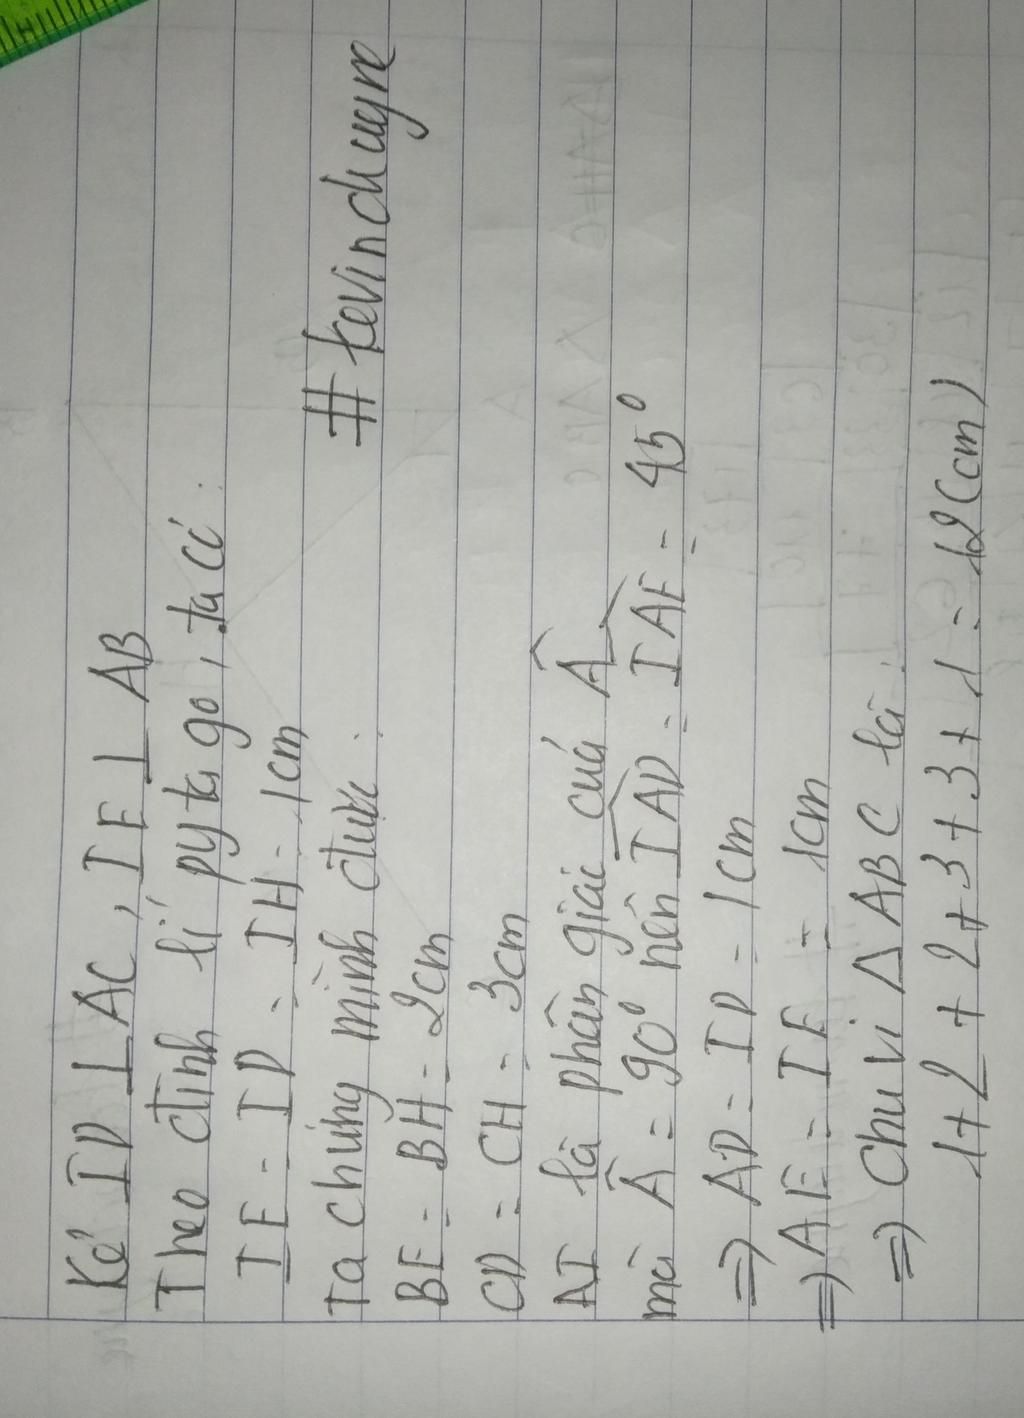 Kẻ ID ⊥ AC, IE ⊥ AB
Theo định lí pytago, ta có:
IE = ID = IH = 1cm
Ta chứng minh được:
#kevinchuyne
BE = BH = 2cm
CD = CH = 3cm
AI là phân giác của Â
mà Â = 90° nên IAD = IAE = 45°
=> AD = ID = 1cm
=> AE = IE = 1cm
=> Chu vi Δ ABC là:
1+2+2+3+3+1 = 12(cm)